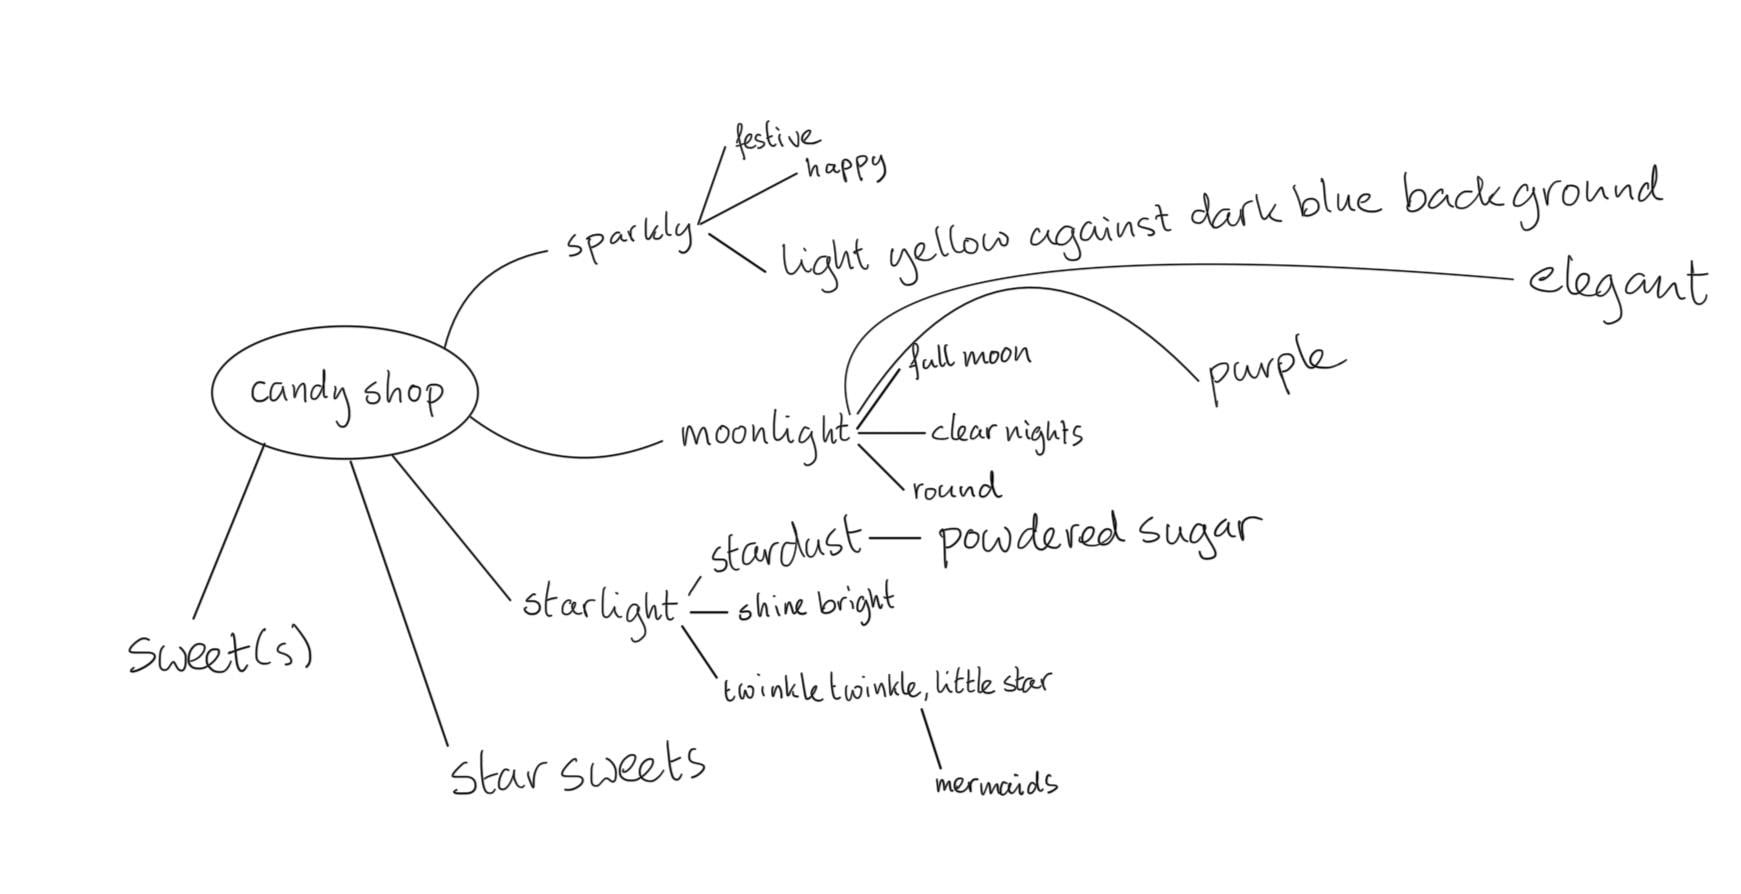 festive
happy
sparkly
light yellow against dark blue background
elegant
full moon
purple
candy shop
moonlight
clear nights
round
stardust
powdered sugar
starlight
shine bright
sweet(s)
twinkle twinkle, little star
star sweets
mermaids